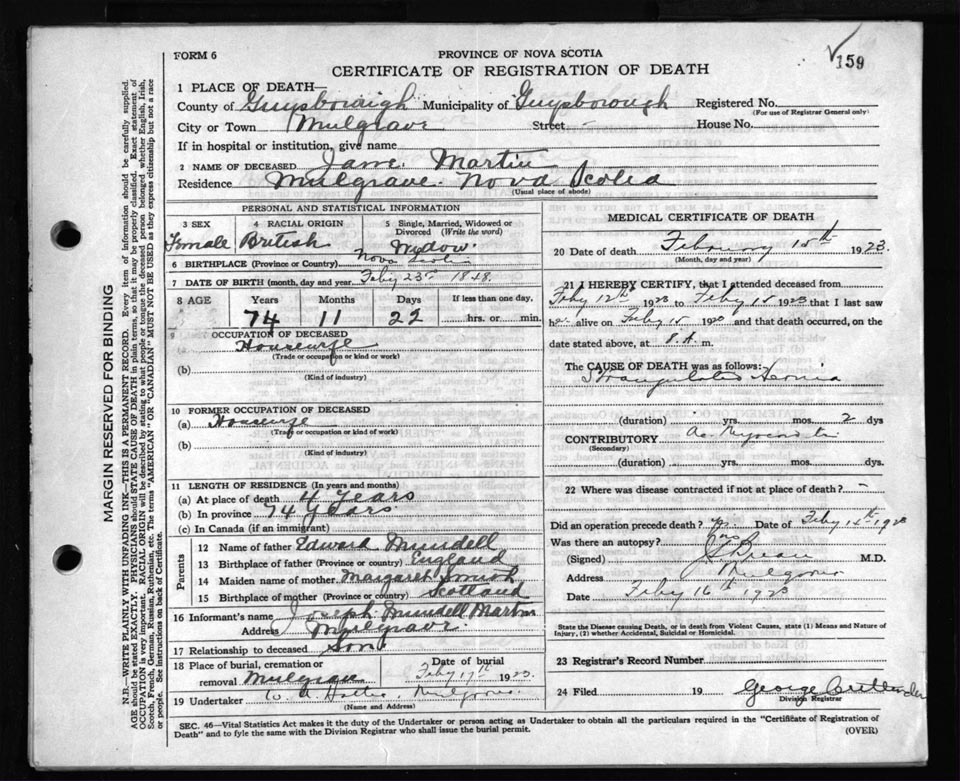 FORM 6
PROVINCE OF NOVA SCOTIA
159
CERTIFICATE OF REGISTRATION OF DEATH
1 PLACE OF DEATH—
County of Guysborough Municipality of Guysborough Registered No.
(For use of Registrar General only)
City or Town Mulgrave Street - House No.
If in hospital or institution, give name
2 NAME OF DECEASED Jane Martin
Residence Mulgrave Nova Scotia
(Usual place of abode)
PERSONAL AND STATISTICAL INFORMATION
3 SEX 4 RACIAL ORIGIN 5 Single, Married, Widowed or Divorced (Write the word)
Female British Widow
6 BIRTHPLACE (Province or Country) Nova Scotia
7 DATE OF BIRTH (month, day and year) Feby 23rd 1848
8 AGE Years Months Days If less than one day.
74 11 22 hrs. or min.
9 OCCUPATION OF DECEASED
Housewife
(Trade or occupation or kind of work)
(b)
(Kind of industry)
10 FORMER OCCUPATION OF DECEASED
(a) Housewife
(Trade or occupation or kind of work)
(b)
(Kind of industry)
11 LENGTH OF RESIDENCE (In years and months)
(a) At place of death 4 Years
(b) In province 74 Years
(c) In Canada (if an immigrant)
Parents
12 Name of father Edward Mundell
13 Birthplace of father (Province or Country) England
14 Maiden name of mother Margaret
15 Birthplace of mother (Province or Country) Scotland
16 Informant's name Joseph Mundell Martin
Address Mulgrave
17 Relationship to deceased Son
18 Place of burial, cremation or removal Mulgrave
Date of burial Feby 17th 1923.
19 Undertaker Mulgrave
(Name and Address)
MEDICAL CERTIFICATE OF DEATH
20 Date of death February 15th 1923.
(Month, day and year)
21 I HEREBY CERTIFY, that I attended deceased from
Feby 12th 1923 to Feby 15 1923 that I last saw
her alive on Feby 15 1923 and that death occurred, on the
date stated above, at 8.A. m.
The CAUSE OF DEATH was as follows:
Strangulated Hernia
(duration) yrs. mos. 2 dys
CONTRIBUTORY Ac Myocarditis
(Secondary)
(duration) yrs. mos. dys.
22 Where was disease contracted if not at place of death? -
Did an operation precede death? Yes Date of Feby 14th 1923
Was there an autopsy? no
(Signed) M.D.
Address Mulgrave
Date Feby 16th 1923
State the Disease causing Death, or in death from Violent Causes, state (1) Means and Nature of
Injury, (2) whether Accidental, Suicidal or Homicidal.
23 Registrar's Record Number
24 Filed 19 George
Division Registrar
SEC. 46—Vital Statistics Act makes it the duty of the Undertaker or person acting as Undertaker to obtain all the particulars required in the "Certificate of Registration of
Death" and to fyle the same with the Division Registrar who shall issue the burial permit.
(OVER)
MARGIN RESERVED FOR BINDING
N.B.—WRITE PLAINLY WITH UNFADING INK—THIS IS A PERMANENT RECORD. Every item of information should be carefully supplied.
AGE should be stated EXACTLY. PHYSICIANS should STATE CAUSE OF DEATH in plain terms, so that it may be properly classified. Exact statement of
OCCUPATION is very important. RACIAL ORIGIN will be described by stating to what people or tongue the deceased person belonged whether English, Irish,
Scotch, French, German, Russian, Ruthenian, etc. The terms "AMERICAN" OR "CANADIAN" MUST NOT BE USED as they express citizenship but not a race
or people. See instructions on back of Certificate.